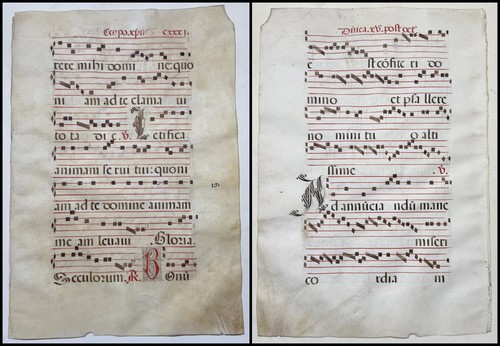 Tempoxpñ cxxxj
rere mihi domi ne: quo
ni am ad te clama ui
tota di e: ℣. Letifica
animam serui tui: quoni
151
am ad te domine animam
me am leuaui . Gloria.
Seculorum. ℟. Bonũ
Dñica. xv. post oct.
e st cõfite ri do
mino et psallere
nomini tu o alti
ssime. ℣.
Ad annũcia ndũ mane
miseri
co rdia m